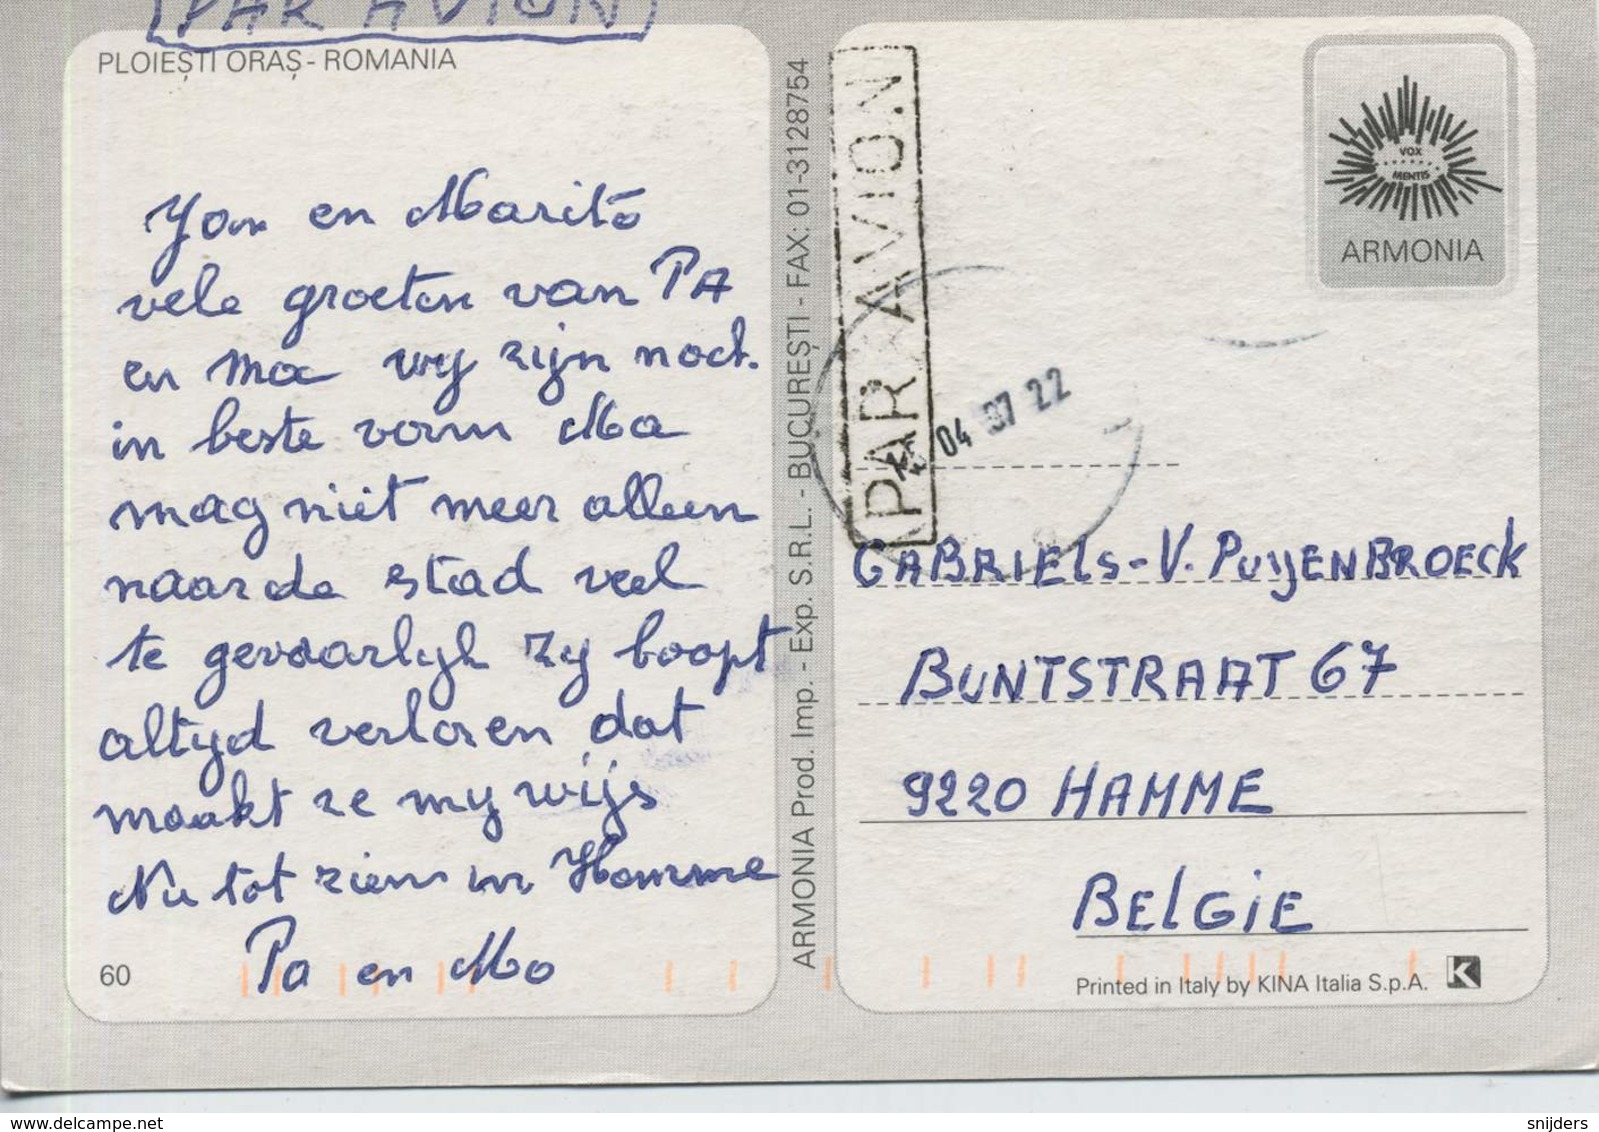 (PAR AVION)
PLOIEȘTI ORAȘ - ROMANIA
Yon en Marito
vele groeten van PA
en Ma wy zijn noch
in beste vorm Ma
mag niet meer alleen
naar de stad veel
te gevaarlyk zy loopt
altyd verloren dat
maakt ze my wijs
Nu tot ziens in Hamme
Pa en Ma
60
ARMONIA Prod. Imp. - Exp. S.R.L. - BUCUREȘTI - FAX: 01-3128754
PAR AVION
04 97 22
VOX
MENTIS
ARMONIA
GABRIELS - V. PUYENBROECK
BUNTSTRAAT 67
9220 HAMME
BELGIE
Printed in Italy by KINA Italia S.p.A. K
delcampe.net
snijders